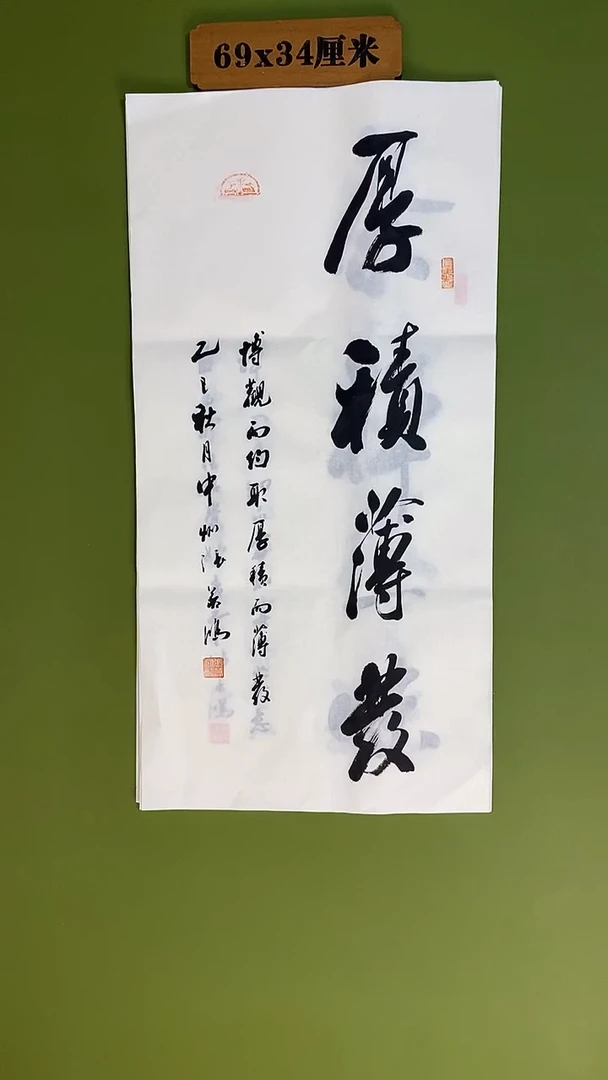 69x34厘米
厚積薄發
博觀而約取厚積而薄發
乙巳秋月中州張